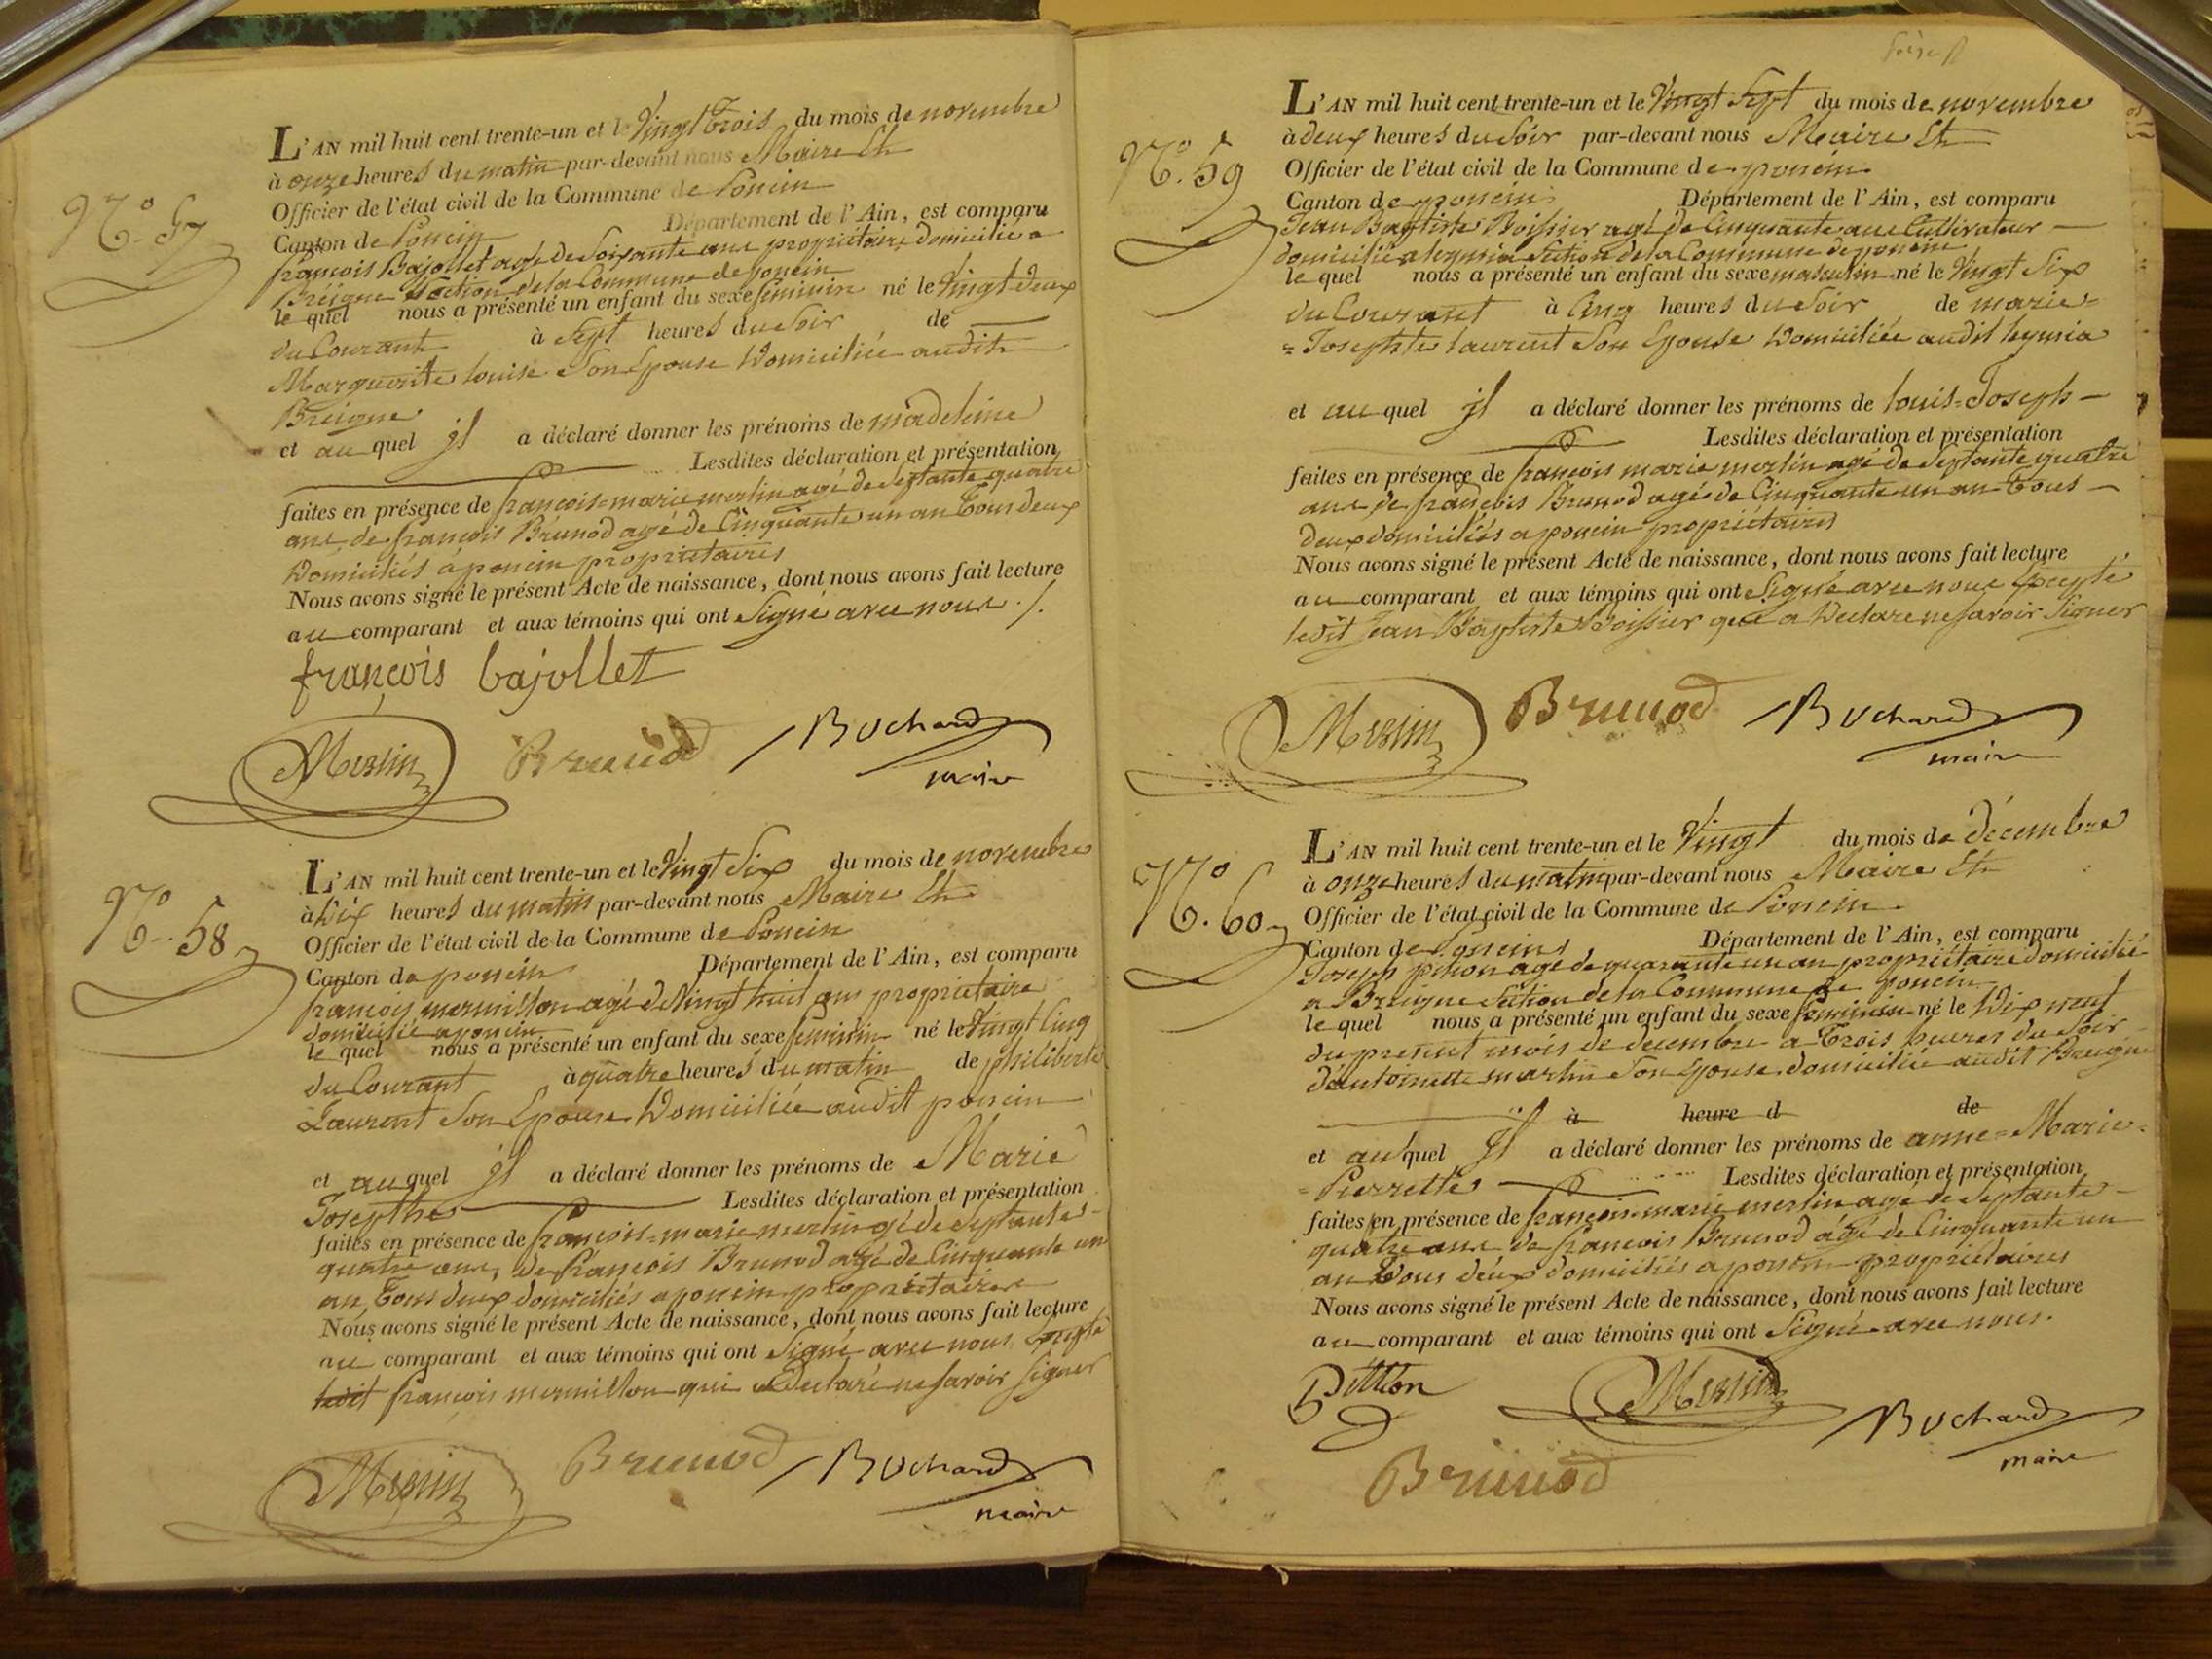 N.º 57
L'AN mil huit cent trente-un et le Vingt Trois du mois de novembre
à onze heures du matin par-devant nous Maire Et
Officier de l'état civil de la Commune de Poncin
Canton de Poncin Département de l'Ain, est comparu
françois Bajollet agé de Soixante ans propriétaire domicilié a
Bréigne section de la Commune de poncin
le quel nous a présenté un enfant du sexe féminin né le Vingt-deux
du Courant à Sept heures du Soir de
Marguerite louise Son Epouse Domiciliée audit
Breigne
et au quel il a déclaré donner les prénoms de madeleine
Lesdites déclaration et présentation
faites en présence de françois-marie merlin agé de Septante quatre
ans, de françois Brunod agé de Cinquante un an Tous deux
Domiciliés à poncin propriétaires
Nous avons signé le présent Acte de naissance, dont nous avons fait lecture
au comparant et aux témoins qui ont Signé avec nous ./.
françois bajollet
Merlin Brunod Bochard
maire
N.º 58
L'AN mil huit cent trente-un et le Vingt Six du mois de novembre
à Dix heures du matin par-devant nous Maire Et
Officier de l'état civil de la Commune de Poncin
Canton de poncin Département de l'Ain, est comparu
françois mermillon agé de Vingt huit ans propriétaire
domicilié a poncin
le quel nous a présenté un enfant du sexe feminin né le Vingt Cinq
du Courant à quatre heures du matin de philiberte
Laurent Son Epouse Domiciliée audit poncin
et au quel il a déclaré donner les prénoms de Marie
Josephte Lesdites déclaration et présentation
faites en présence de françois-marie merlin agé de Septante
quatre ans, de françois Brunod agé de Cinquante un
an, Tous deux domiciliés a poncin propriétaires
Nous avons signé le présent Acte de naissance, dont nous avons fait lecture
au comparant et aux témoins qui ont Signé avec nous Excepté
ledit françois mermillon qui a Déclaré ne savoir signer
Merlin Brunod Bochard
maire
N.º 59
L'AN mil huit cent trente-un et le Vingt Sept du mois de novembre
à deux heures du Soir par-devant nous Maire Et
Officier de l'état civil de la Commune de poncin
Canton de poncin Département de l'Ain, est comparu
Jean Baptiste Boissier agé de Cinquante ans Cultivateur
domicilié a leymia Section de la Commune de poncin
le quel nous a présenté un enfant du sexe masculin né le Vingt Six
du Courant à Cinq heures du Soir de marie=
=Josephte laurent Son Epouse Domiciliée audit leymia
et au quel il a déclaré donner les prénoms de louis=Joseph
Lesdites déclaration et présentation
faites en présence de françois marie merlin agé de Septante quatre
ans, de françois Brunod agé de Cinquante un an Tous
deux domiciliés a poncin propriétaires
Nous avons signé le présent Acte de naissance, dont nous avons fait lecture
au comparant et aux témoins qui ont Signé avec nous Excepté
ledit Jean Baptiste Boissier qui a Declaré ne savoir Signer
Merlin Brunod Bochard
maire
N.º 60
L'AN mil huit cent trente-un et le Vingt du mois de décembre
à onze heures du matin par-devant nous Maire Et
Officier de l'état civil de la Commune de Poncin
Canton de Poncin Département de l'Ain, est comparu
Joseph pition agé de quarante un an propriétaire domicilié
a Breigne Section de la Commune de poncin
le quel nous a présenté un enfant du sexe feminin né le Dix neuf
du present mois de decembre a Trois heures du Soir
d'antoinette merlin Son Epouse domiciliée audit Breigne
à heure d de
et au quel il a déclaré donner les prénoms de anne=Marie=
=Pierrette Lesdites déclaration et présentation
faites en présence de françois-marie merlin agé de Septante
quatre ans de francois Brunod âgé de Cinquante un
an Tous deux domiciliés a poncin propriétaires
Nous avons signé le présent Acte de naissance, dont nous avons fait lecture
au comparant et aux témoins qui ont Signé avec nous.
Pittion Merlin Bochard
maire
Brunod